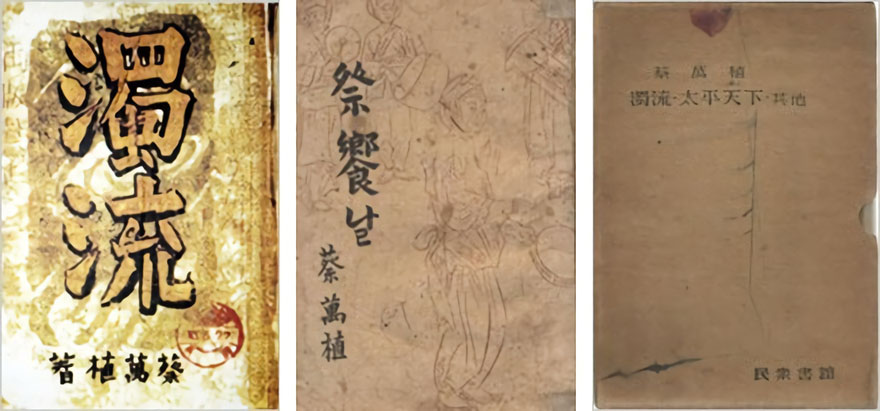 濁流
蔡萬植著
祭饗날
蔡萬植
蔡萬植
濁流·太平天下·其他
民衆書館